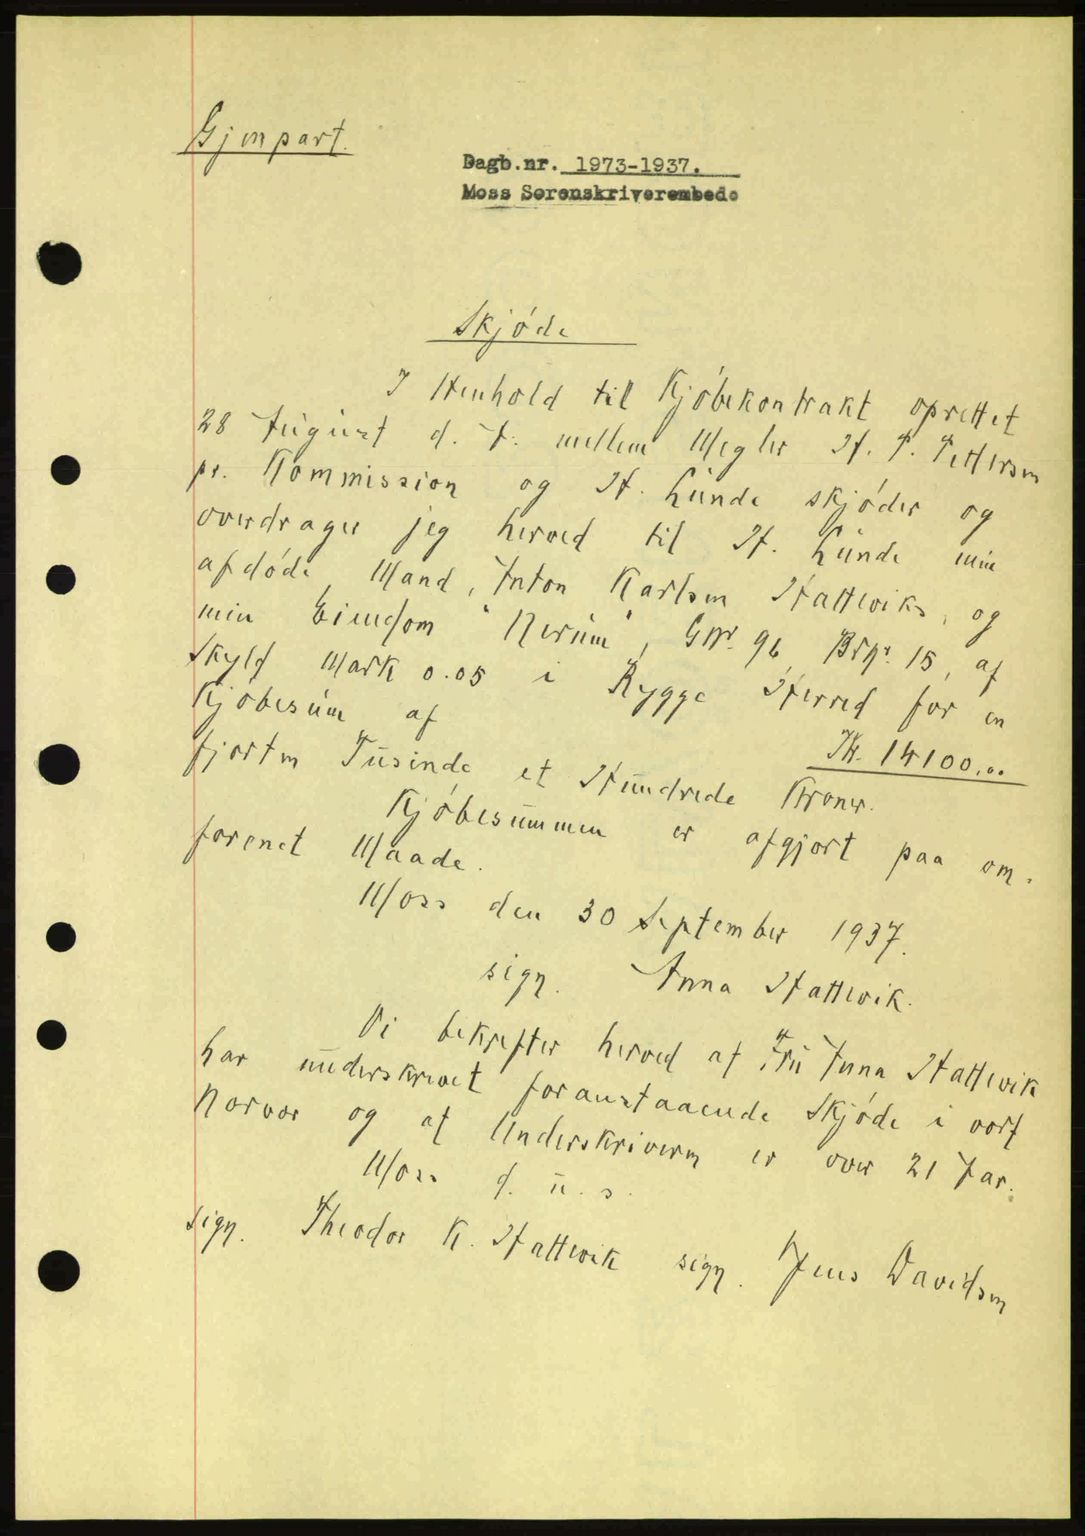 Gjenpart.
Dagb.nr. 1973-1937.
Moss Sorenskriverembede
Skjøde
I Henhold til Kjøbekontrakt oprettet
28 August d. A. mellem Megler H. P. Pettersen
pr. Kommission og H. Lunde skjøder og
overdrager jeg herved til H. Lunde min
afdøde Mand, Anton Karlsen Hattevik's, og
min Eiendom "Nerum", GNr. 96, BrNr. 15, af
Skyld Mark 0.05 i Rygge Herred for en
Kjøbesum af Kr. 14100,00
fjorten Tusinde et Hundrede Kroner.
Kjøbesummen er afgjort paa om-
forenet Maade.
Moss den 30 September 1937.
sign. Anna Hattevik.
Vi bekrefter herved at Fru Anna Hattevik
har underskrevet foranstaaende Skjøde i vort
Nærvær og at Underskriveren er over 21 Aar.
Moss d. u. s.
sign. Theodor K. Hattevik sign. Jens Davidsen